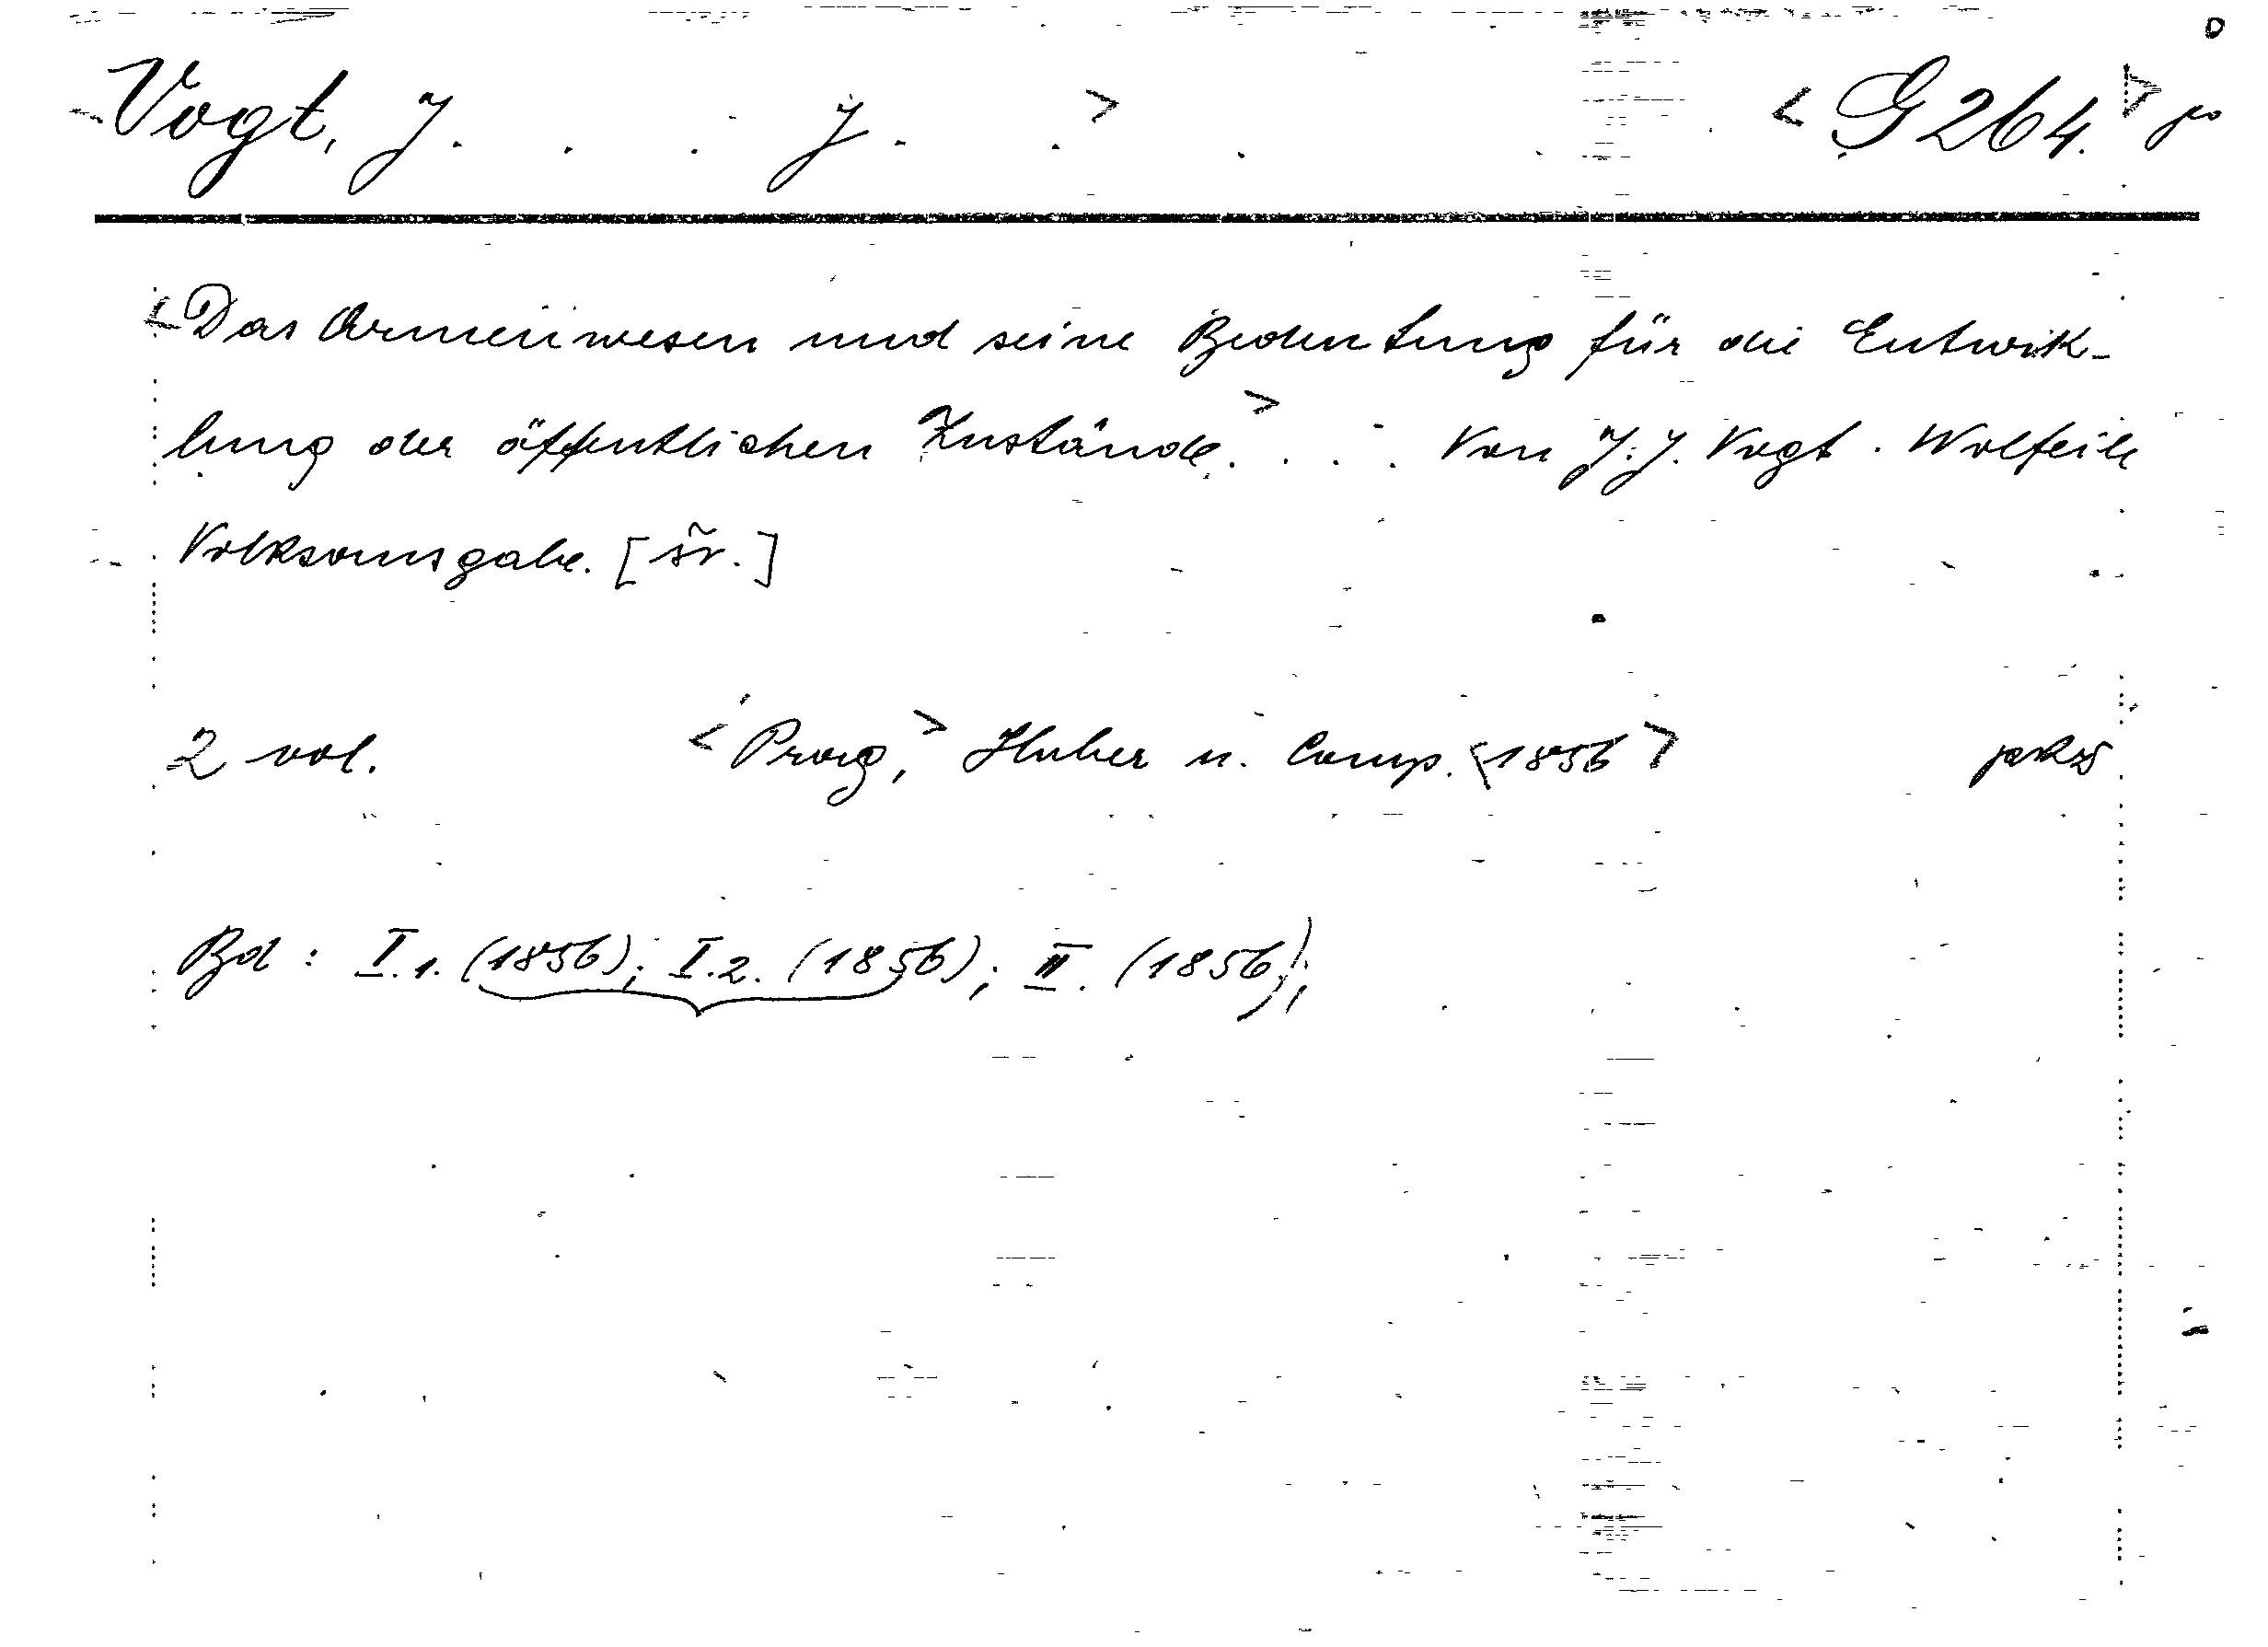 Vogt, J. . . . J. . . > . < G 264. >
<Das Armenwesen und seine Bedeutung für die Entwik-
lung der öffentlichen Zustände.> . . . Von J. J. Vogt. Wolfeile
Volksausgabe. [šv.]
2 vol. <Prag,> Huber u. Comp. <1856>
Bd: I.1. (1856); I.2. (1856); II. (1856);